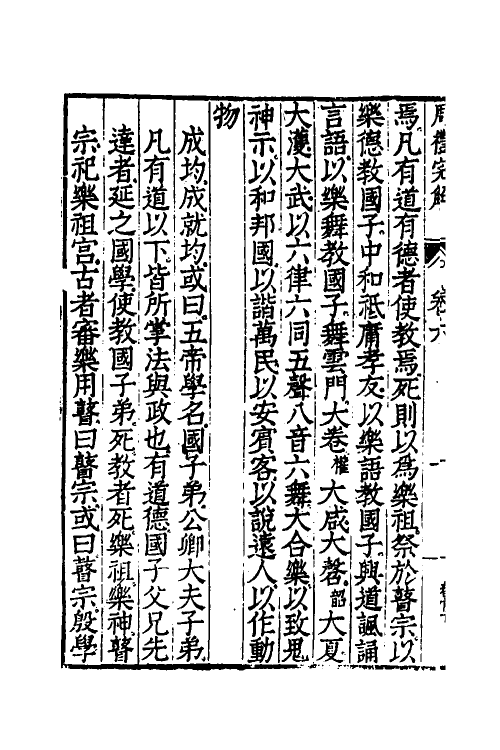 周禮完解 卷六
焉凡有道有德者使教焉死則以爲樂祖祭於瞽宗以
樂德教國子中和祗庸孝友以樂語教國子興道諷誦
言語以樂舞教國子舞雲門大卷權大咸大磬韶大夏
大濩大武以六律六同五聲八音六舞大合樂以致鬼
神示以和邦國以諧萬民以安賓客以說遠人以作動
物
成均成就均或曰五帝學名國子弟公卿大夫子弟
凡有道以下皆所掌法與政也有道德國子父兄先
達者延之國學使教國子弟死教者死樂祖樂神瞽
宗祀樂祖宫古者審樂用瞽曰瞽宗或曰瞽宗殷學